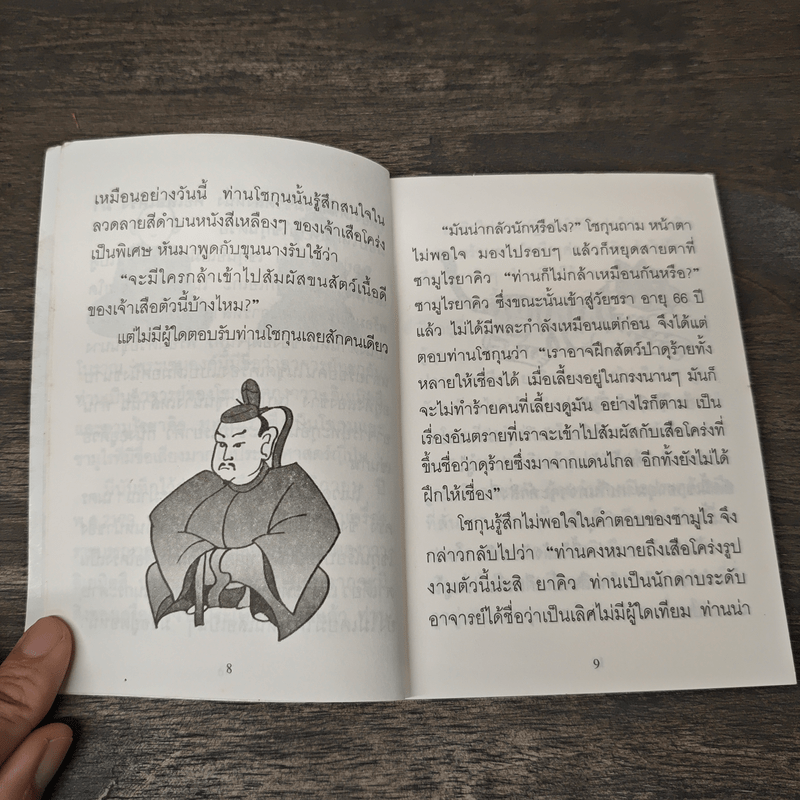 เหมือนอย่างวันนี้ ท่านโชกุนนั้นรู้สึกสนใจใน
ลวดลายสีดำบนหนังสีเหลืองๆ ของเจ้าเสือโคร่ง
เป็นพิเศษ หันมาพูดกับขุนนางรับใช้ว่า
“จะมีใครกล้าเข้าไปสัมผัสขนสัตว์เนื้อดี
ของเจ้าเสือตัวนี้บ้างไหม?”
แต่ไม่มีผู้ใดตอบรับท่านโชกุนเลยสักคนเดียว
8
“มันน่ากลัวนักหรือไง?” โชกุนถาม หน้าตา
ไม่พอใจ มองไปรอบๆ แล้วก็หยุดสายตาที่
ซามูไรยาคิว “ท่านก็ไม่กล้าเหมือนกันหรือ?”
ซามูไรยาคิว ซึ่งขณะนั้นเข้าสู่วัยชรา อายุ 66 ปี
แล้ว ไม่ได้มีพละกำลังเหมือนแต่ก่อน จึงได้แต่
ตอบท่านโชกุนว่า “เราอาจฝึกสัตว์ป่าดุร้ายทั้ง
หลายให้เชื่องได้ เมื่อเลี้ยงอยู่ในกรงนานๆ มันก็
จะไม่ทำร้ายคนที่เลี้ยงดูมัน อย่างไรก็ตาม เป็น
เรื่องอันตรายที่เราจะเข้าไปสัมผัสกับเสือโคร่งที่
ขึ้นชื่อว่าดุร้ายซึ่งมาจากแดนไกล อีกทั้งยังไม่ได้
ฝึกให้เชื่อง”
โชกุนรู้สึกไม่พอใจในคำตอบของซามูไร จึง
กล่าวกลับไปว่า “ท่านคงหมายถึงเสือโคร่งรูป
งามตัวนี้น่ะสิ ยาคิว ท่านเป็นนักดาบระดับ
อาจารย์ได้ชื่อว่าเป็นเลิศไม่มีผู้ใดเทียม ท่านน่า
9